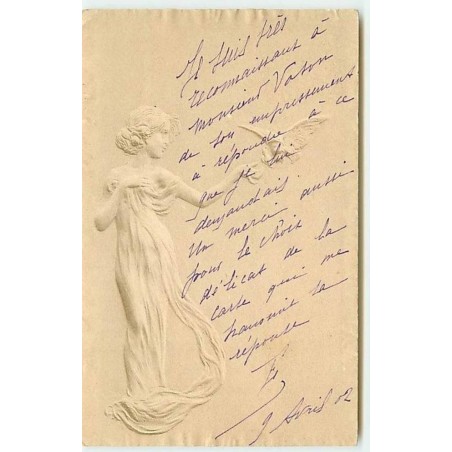 Je suis très
reconnaissant à
monsieur Vaton
de son empressement
à répondre à ce
que je lui
demandais.
Un merci aussi
pour le choix
délicat de la
carte qui me
transmit la
réponse
9 Avril 02